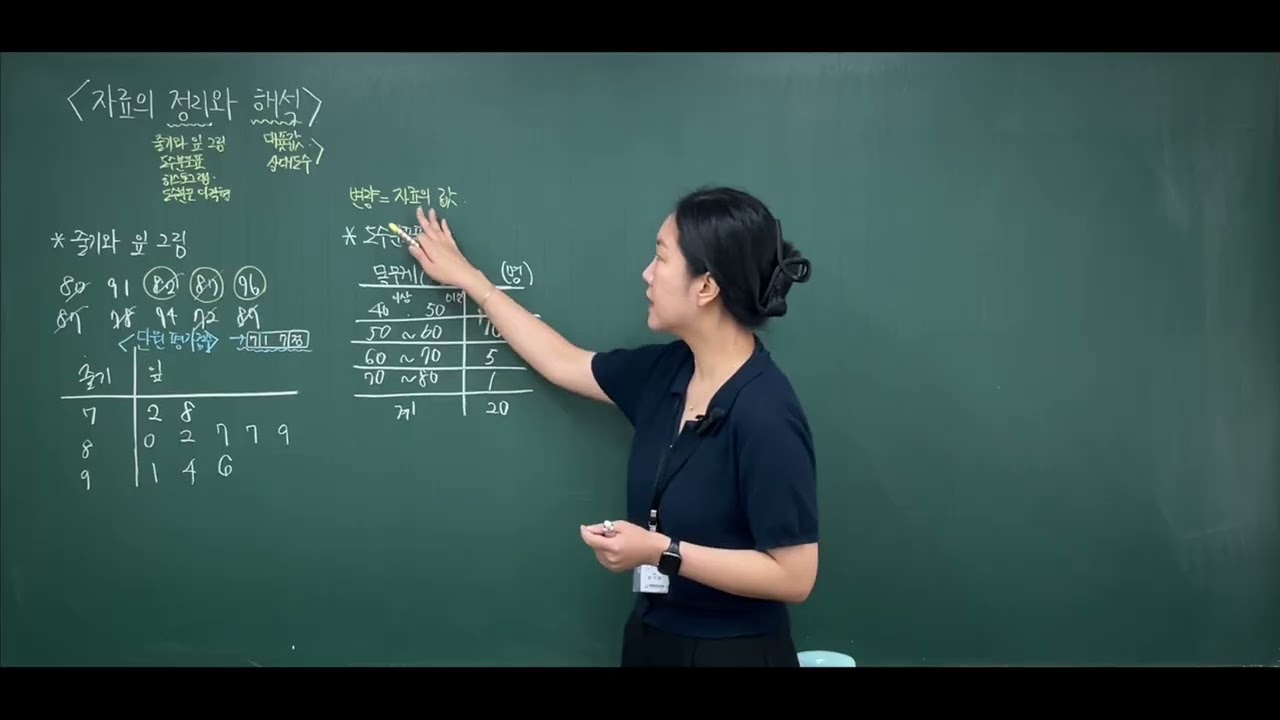 <자료의 정리와 해석>
줄기와 잎 그림
도수분포표
히스토그램
도수분포 다각형
대푯값
상대도수
변량 = 자료의 값
* 줄기와 잎 그림
80 91 82 87 96
87 78 94 72 89
<단원 평가(점)> → 7|1 71점
줄기 잎
7 2 8
8 0 2 7 7 9
9 1 4 6
* 도수분포표
몸무게( (명)
이상 미만
40 ~ 50
50 ~ 60 10
60 ~ 70 5
70 ~ 80 1
계 20